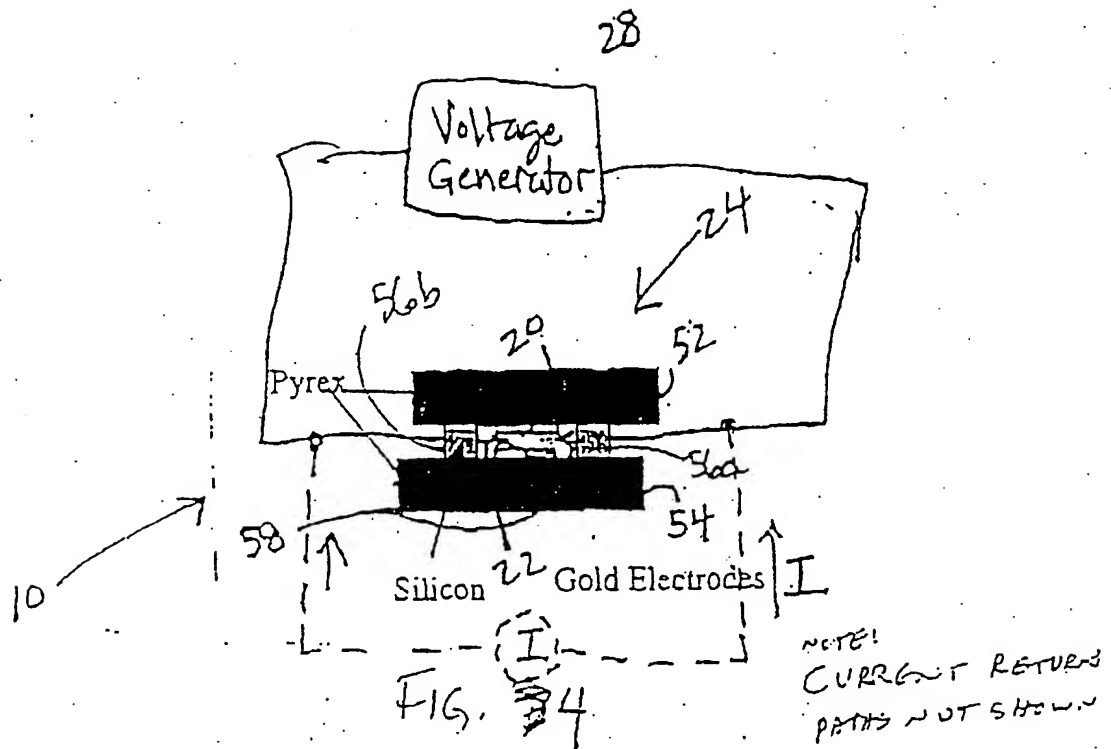 28
Voltage
Generator
24
56b
20
52
Pyrex
56a
58
54
10
Silicon
22
Gold Electrodes
I
I
FIG. 4
NOTE!
CURRENT RETURNS
PATHS NOT SHOWN